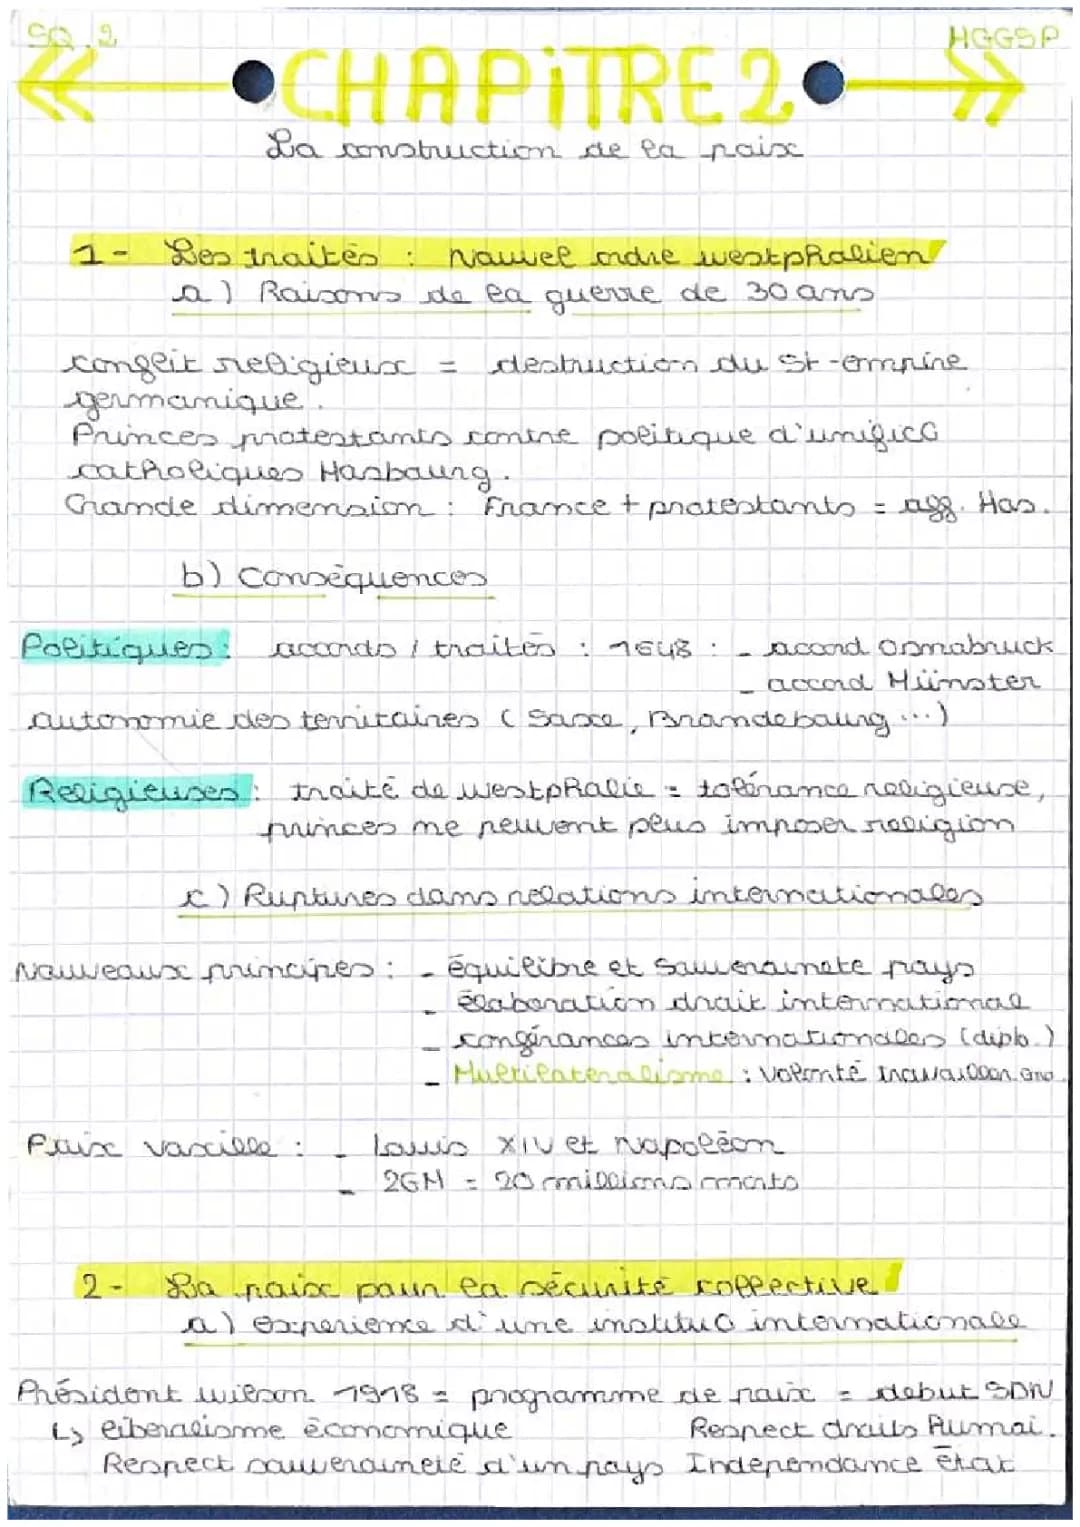 SQ.2
HGGSP
CHAPiTRE 2
La construction de la paix
1- Les traités : Nouvel ordre westphalien
a) Raisons de la guerre de 30 ans
conflit religieux = destruction du St-empire
germanique.
Princes protestants contre politique d'unific°
catholiques Hasbourg.
Grande dimension : France + protestants = aff. Has.
b) Conséquences
Politiques : accords / traités : 1648 : - accord Osnabruck
- accord Münster
autonomie des territoires (Saxe, Brandebourg...)
Religieuses : traité de westphalie = tolérance religieuse,
princes ne peuvent plus imposer religion
c) Ruptures dans relations internationales
Nouveaux principes : - équilibre et souveraineté pays
- élaboration droit international
- conférences internationales (diplo.)
- Multilatéralisme : volonté travailler ens.
Paix vacille : - Louis XIV et Napoléon
- 2GM = 20 millions morts
2- La paix pour la sécurité collective
a) experience d'une institu° internationale
Président wilson 1918 = programme de paix = debut SDN
↳ liberalisme économique Respect droits humai.
Respect souveraineté d'un pays Indépendance État